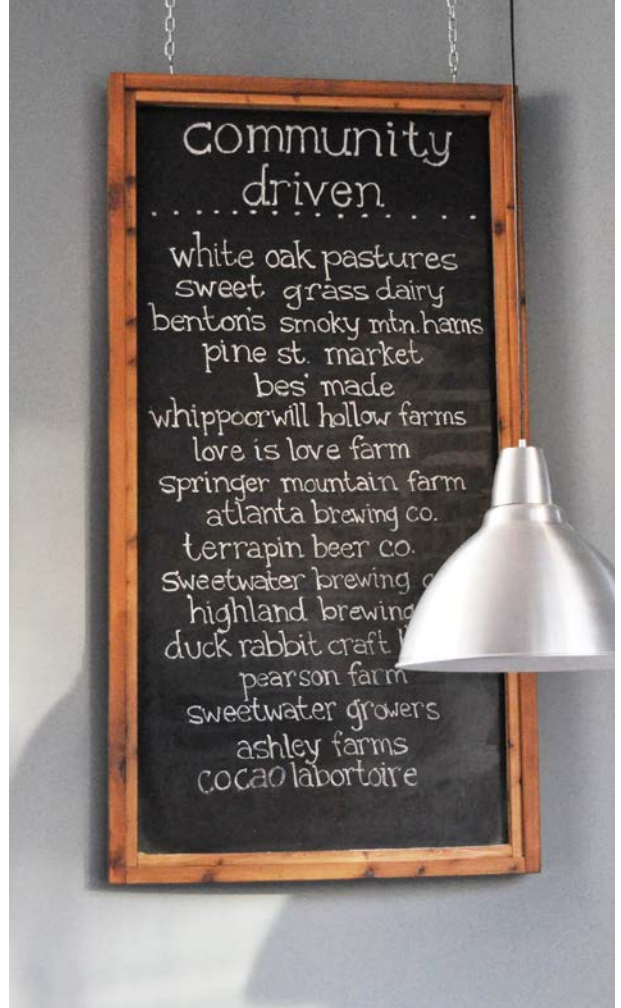 community
driven
white oak pastures
sweet grass dairy
benton's smoky mtn. hams
pine st. market
bes' made
whippoorwill hollow farms
love is love farm
springer mountain farm
atlanta brewing co.
terrapin beer co.
sweetwater brewing
highland brewing
duck rabbit craft
pearson farm
sweetwater growers
ashley farms
cocao labortoire